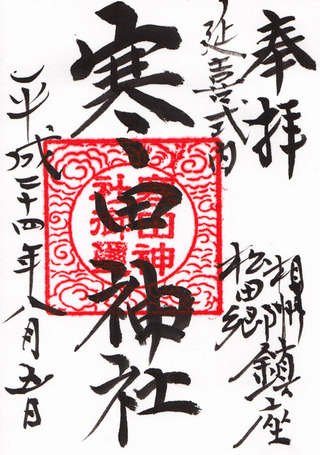 奉拝
相州
松田郷鎮座
延喜式内
寒田神社
平成二十四年八月五日
寒田神
社御璽